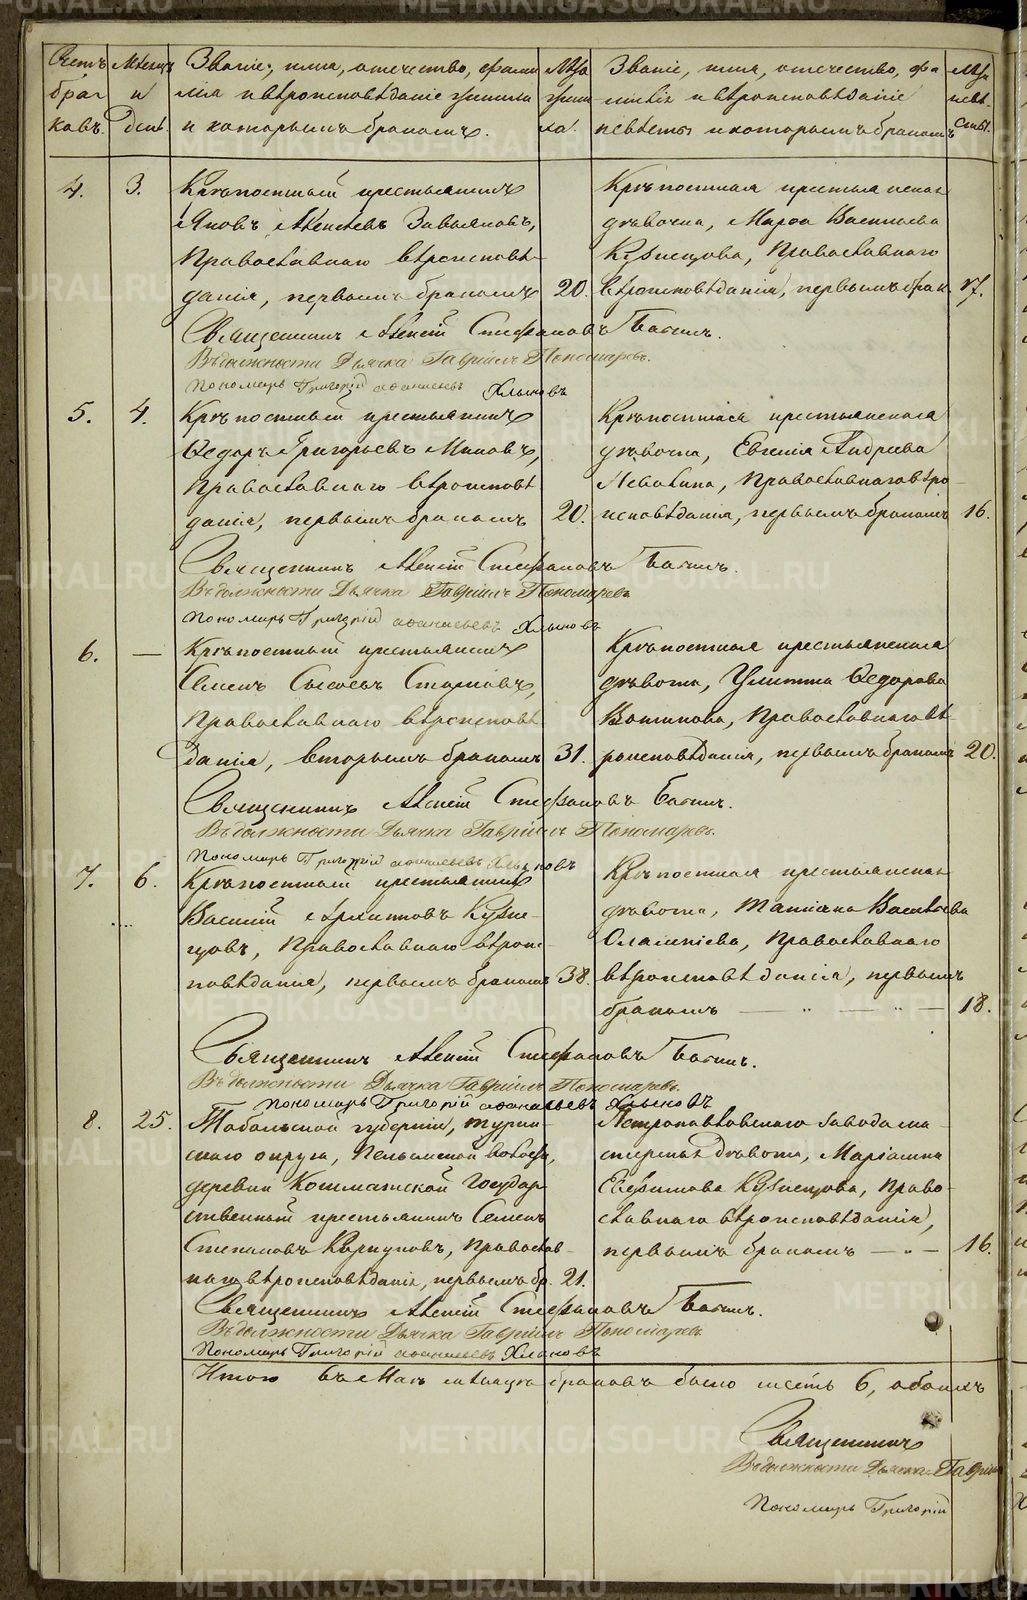 METRIKI.GASO-URAL.RU
Счетъ браковъ.
Мѣсяцъ и день.
Званіе, имя, отечество, фамилія и вѣроисповѣданіе жениха и которымъ бракомъ.
Лѣта жениха.
Званіе, имя, отечество, фамилія и вѣроисповѣданіе невѣсты и которымъ бракомъ
Лѣта невѣсты.
4. 3. Крѣпостный крестьянинъ
Яковъ Алексѣевъ Завьяловъ,
Православнаго вѣроисповѣ-
данія, первымъ бракомъ 20.
Крѣпостная крестьянская
дѣвочка, Марѳа Васильева
Кузнецова, Православнаго
вѣроисповѣданія, первымъ брак. 17.
Священникъ Алексій Стефановъ
Въ должности Дьячка Гавріилъ Пономаревъ.
Пономарь Григорій Афанасьевъ Хлыновъ
5. 4. Крѣпостный крестьянинъ
Ѳедоръ Григорьевъ
Православнаго вѣроисповѣ
данія, первымъ бракомъ 20.
Крѣпостная крестьянская
дѣвочка, Евгенія Андреева
Православнаго вѣро-
исповѣданія, первымъ бракомъ 16.
Священникъ Алексій Стефановъ
Въ должности Дьячка Гавріилъ Пономаревъ
Пономарь Григорій Афанасьевъ Хлыновъ
6. — Крѣпостный крестьянинъ
Семенъ Сысоевъ
Православнаго вѣроисповѣ
данія, вторымъ бракомъ 31.
Крѣпостная крестьянская
дѣвочка, Улитина Ѳедорова
Православнаго вѣ-
роисповѣданія, первымъ бракомъ 20.
Священникъ Алексій Стефановъ
Въ должности Дьячка Гавріилъ Пономаревъ.
Пономарь Григорій Афанасьевъ Хлыновъ
7. 6. Крѣпостный крестьянинъ
Василій Архиповъ Кузне-
цовъ, Православнаго вѣроис-
повѣданія, первымъ бракомъ 38.
Крѣпостная крестьянская
дѣвочка, Татіана Васильева
Православнаго
вѣроисповѣданія, первымъ
бракомъ — „ — „ — 18.
Священникъ Алексій Стефановъ
Въ должности Дьячка Гавріилъ Пономаревъ.
Пономарь Григорій Афанасьевъ Хлыновъ
8. 25. Тобольской губерніи, Турин-
скаго округа, Пелымской волости,
деревни Государ-
ственный крестьянинъ Семенъ
Степановъ Православ-
наго вѣроисповѣданія, первымъ бр. 21.
Петропавловскаго завода ма-
стерская дѣвочка, Маріамна
Евфимова Кузнецова, Право-
славнаго вѣроисповѣданія,
первымъ бракомъ — „ — 16.
Священникъ Алексій Стефановъ
Въ должности Дьячка Гавріилъ Пономаревъ
Пономарь Григорій Афанасьевъ Хлыновъ
Итого въ Маѣ мѣсяцѣ браковъ было шесть 6, обоихъ
Священникъ
Въ должности Дьячка Гавріилъ
Пономарь Григорій